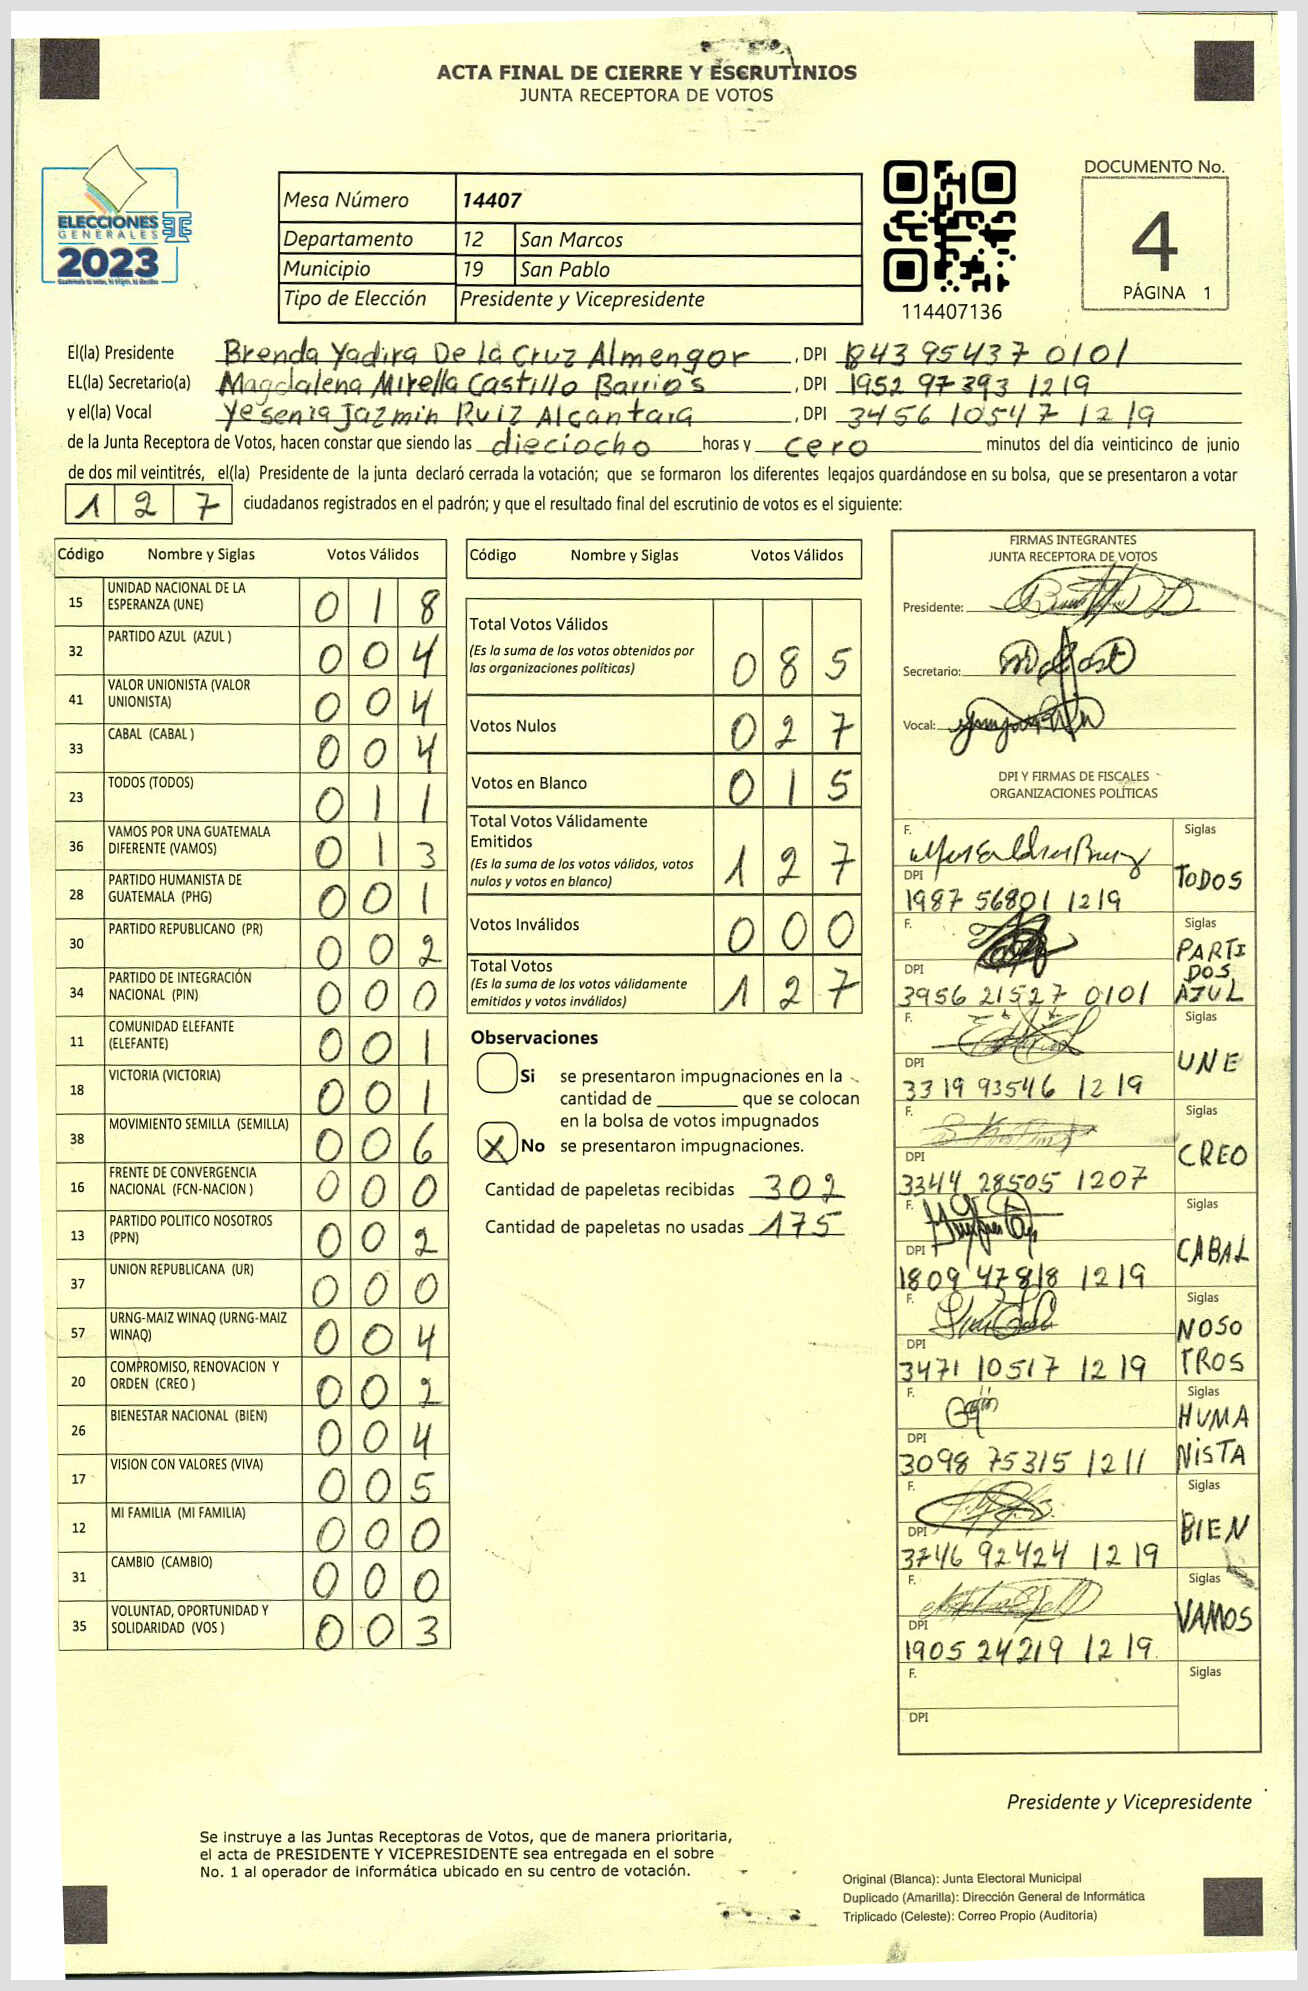 ACTA FINAL DE CIERRE Y ESCRUTINIOS
JUNTA RECEPTORA DE VOTOS
ELECCIONES
GENERALES
2023
Mesa Número 14407
Departamento 12 San Marcos
Municipio 19 San Pablo
Tipo de Elección Presidente y Vicepresidente
114407136
DOCUMENTO No.
4
PÁGINA 1
El(la) Presidente Brenda Yadira De la Cruz Almengor, DPI 84395437 0101
EL(la) Secretario(a) Magdalena Mirella Castillo Barrios, DPI 1952 97393 1219
y el(la) Vocal Yesenia Jazmin Ruiz Alcantara, DPI 3456 10547 1219
de la Junta Receptora de Votos, hacen constar que siendo las dieciocho horas y cero minutos del día veinticinco de junio
de dos mil veintitrés, el(la) Presidente de la junta declaró cerrada la votación; que se formaron los diferentes legajos quardándose en su bolsa, que se presentaron a votar
127 ciudadanos registrados en el padrón; y que el resultado final del escrutinio de votos es el siguiente:
Código Nombre y Siglas Votos Válidos
15 UNIDAD NACIONAL DE LA ESPERANZA (UNE) 018
32 PARTIDO AZUL (AZUL ) 004
41 VALOR UNIONISTA (VALOR UNIONISTA) 004
33 CABAL (CABAL ) 004
23 TODOS (TODOS) 011
36 VAMOS POR UNA GUATEMALA DIFERENTE (VAMOS) 013
28 PARTIDO HUMANISTA DE GUATEMALA (PHG) 001
30 PARTIDO REPUBLICANO (PR) 002
34 PARTIDO DE INTEGRACIÓN NACIONAL (PIN) 000
11 COMUNIDAD ELEFANTE (ELEFANTE) 001
18 VICTORIA (VICTORIA) 001
38 MOVIMIENTO SEMILLA (SEMILLA) 006
16 FRENTE DE CONVERGENCIA NACIONAL (FCN-NACION ) 000
13 PARTIDO POLITICO NOSOTROS (PPN) 002
37 UNION REPUBLICANA (UR) 000
57 URNG-MAIZ WINAQ (URNG-MAIZ WINAQ) 004
20 COMPROMISO, RENOVACION Y ORDEN (CREO ) 002
26 BIENESTAR NACIONAL (BIEN) 004
17 VISION CON VALORES (VIVA) 005
12 MI FAMILIA (MI FAMILIA) 000
31 CAMBIO (CAMBIO) 000
35 VOLUNTAD, OPORTUNIDAD Y SOLIDARIDAD (VOS ) 003
Código Nombre y Siglas Votos Válidos
Total Votos Válidos 085
(Es la suma de los votos obtenidos por
las organizaciones políticas)
Votos Nulos 027
Votos en Blanco 015
Total Votos Válidamente
Emitidos 127
(Es la suma de los votos válidos, votos
nulos y votos en blanco)
Votos Inválidos 000
Total Votos 127
(Es la suma de los votos válidamente
emitidos y votos inválidos)
Observaciones
Si se presentaron impugnaciones en la
cantidad de ________ que se colocan
en la bolsa de votos impugnados
X No se presentaron impugnaciones.
Cantidad de papeletas recibidas 302
Cantidad de papeletas no usadas 175
FIRMAS INTEGRANTES
JUNTA RECEPTORA DE VOTOS
Presidente:
Secretario:
Vocal:
DPI Y FIRMAS DE FISCALES
ORGANIZACIONES POLÍTICAS
F. Siglas
DPI TODOS
1987 56801 1219
F. Siglas
DPI PARTIDOS AZUL
3956 21527 0101
F. Siglas
DPI UNE
3319 93546 1219
F. Siglas
DPI CREO
3344 28505 1207
F. Siglas
DPI CABAL
1809 47818 1219
F. Siglas
DPI NOSOTROS
3471 10517 1219
F. Siglas
DPI HUMANISTA
3098 75315 1211
F. Siglas
DPI BIEN
3746 92424 1219
F. Siglas
DPI VAMOS
1905 24219 1219
F. Siglas
DPI
Presidente y Vicepresidente
Se instruye a las Juntas Receptoras de Votos, que de manera prioritaria,
el acta de PRESIDENTE Y VICEPRESIDENTE sea entregada en el sobre
No. 1 al operador de informática ubicado en su centro de votación.
Original (Blanca): Junta Electoral Municipal
Duplicado (Amarilla): Dirección General de Informática
Triplicado (Celeste): Correo Propio (Auditoría)